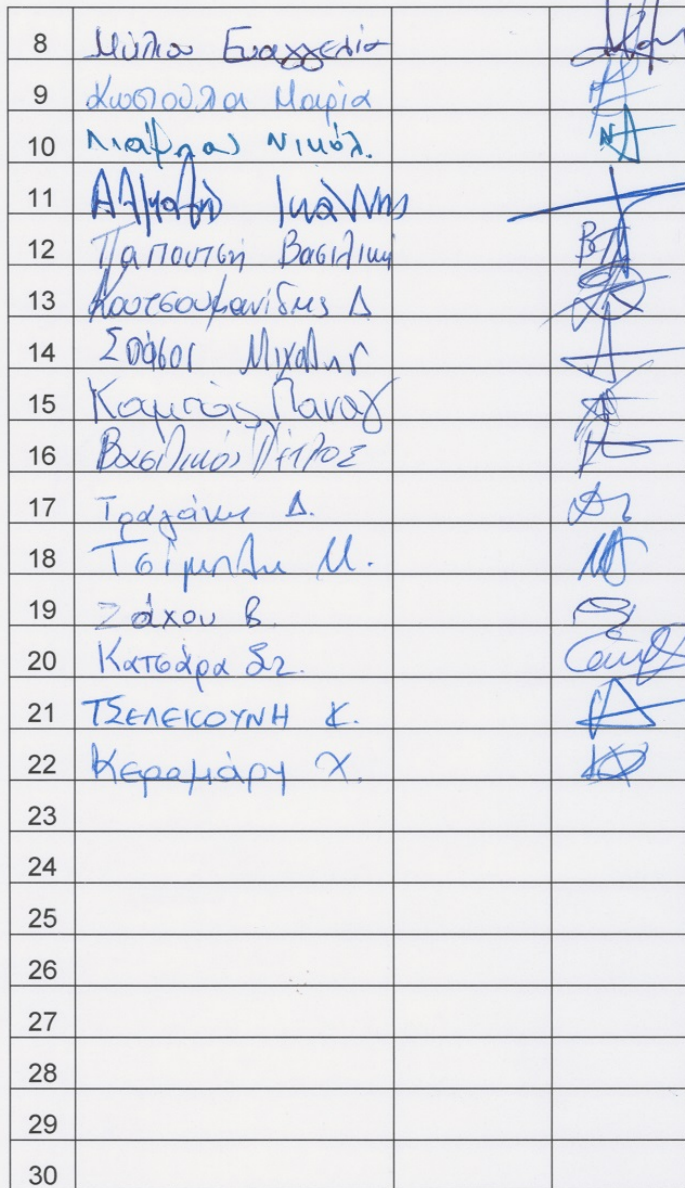 8 Μύλιου Ευαγγελία
9 Κωστούλα Μαρία
10 Νικόλ.
11 Ιωάννης
12 Παπουτσή Βασιλική
13 Κουτσουμανίδης Δ
14 Σπάσοι Μιχαλης
15 Παναγ
16 Βασιλικός Πέτρος
17 Τραγάνης Δ.
18 Μ.
19 Ζάχου Β.
20 Κατσάρα Στ.
21 ΤΣΕΛΕΙΚΟΥΝΗ Κ.
22 Κεραμάρη Χ.
23
24
25
26
27
28
29
30